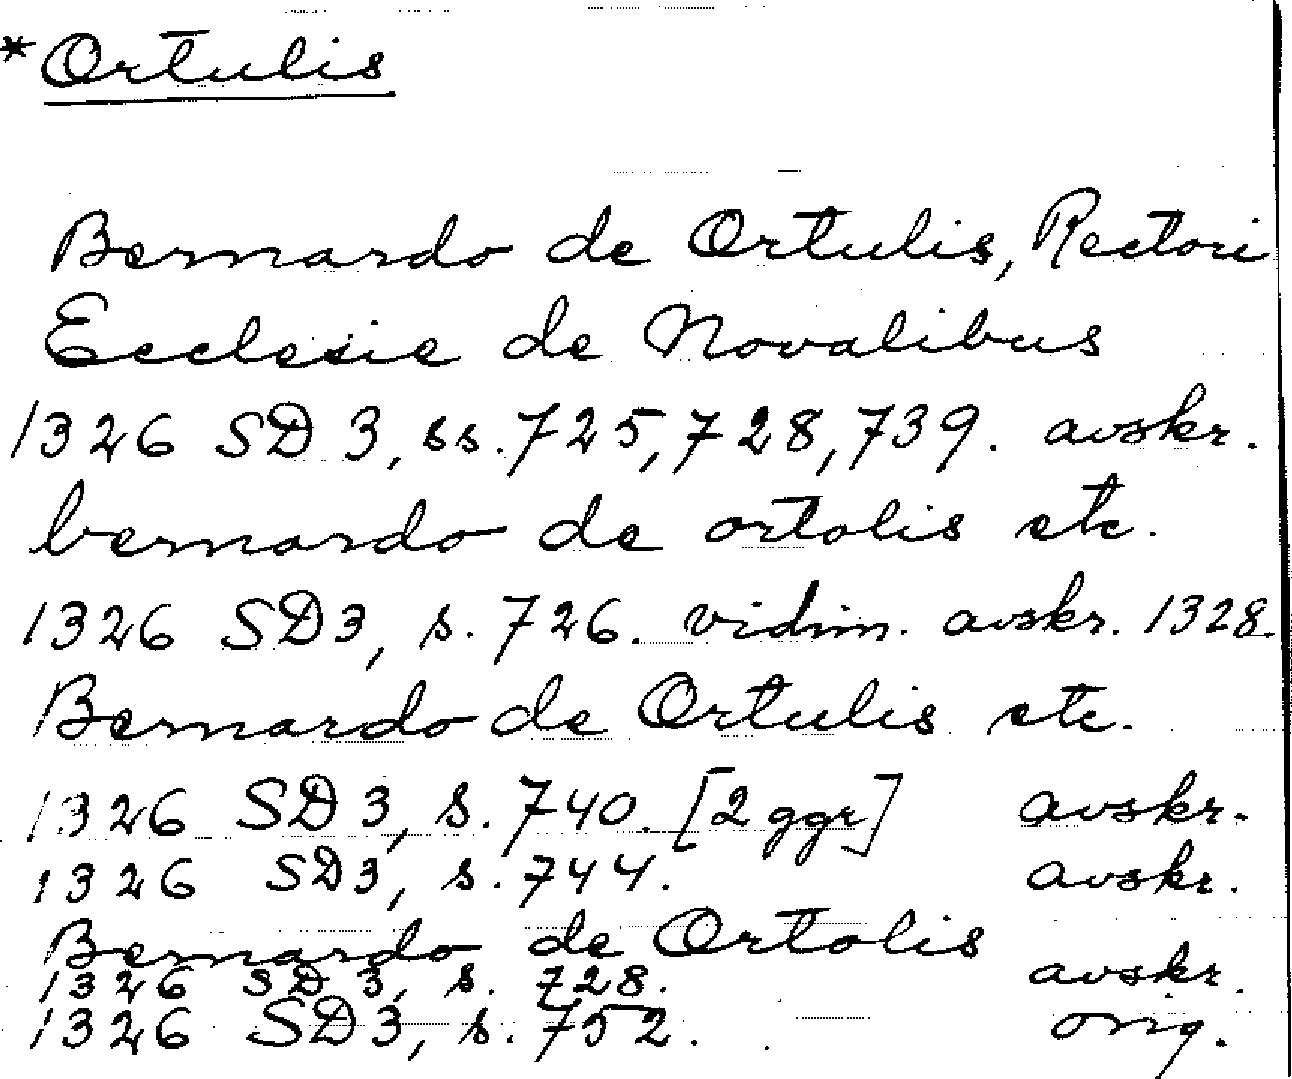 *Ortulis
Bernardo de Ortulis, Rectori
Ecclesie de Novalibus
1326 SD 3, ss. 725, 728, 739. avskr.
bernardo de ortolis etc.
1326 SD3, s. 726. vidim. avskr. 1328.
Bernardo de Ortulis etc.
1326 SD 3, s. 740. [2 ggr] avskr.
1326 SD3, s. 744. avskr.
Bernardo de Ortolis
1326 SD 3, s. 728. avskr.
1326 SD3, s. 752. orig.